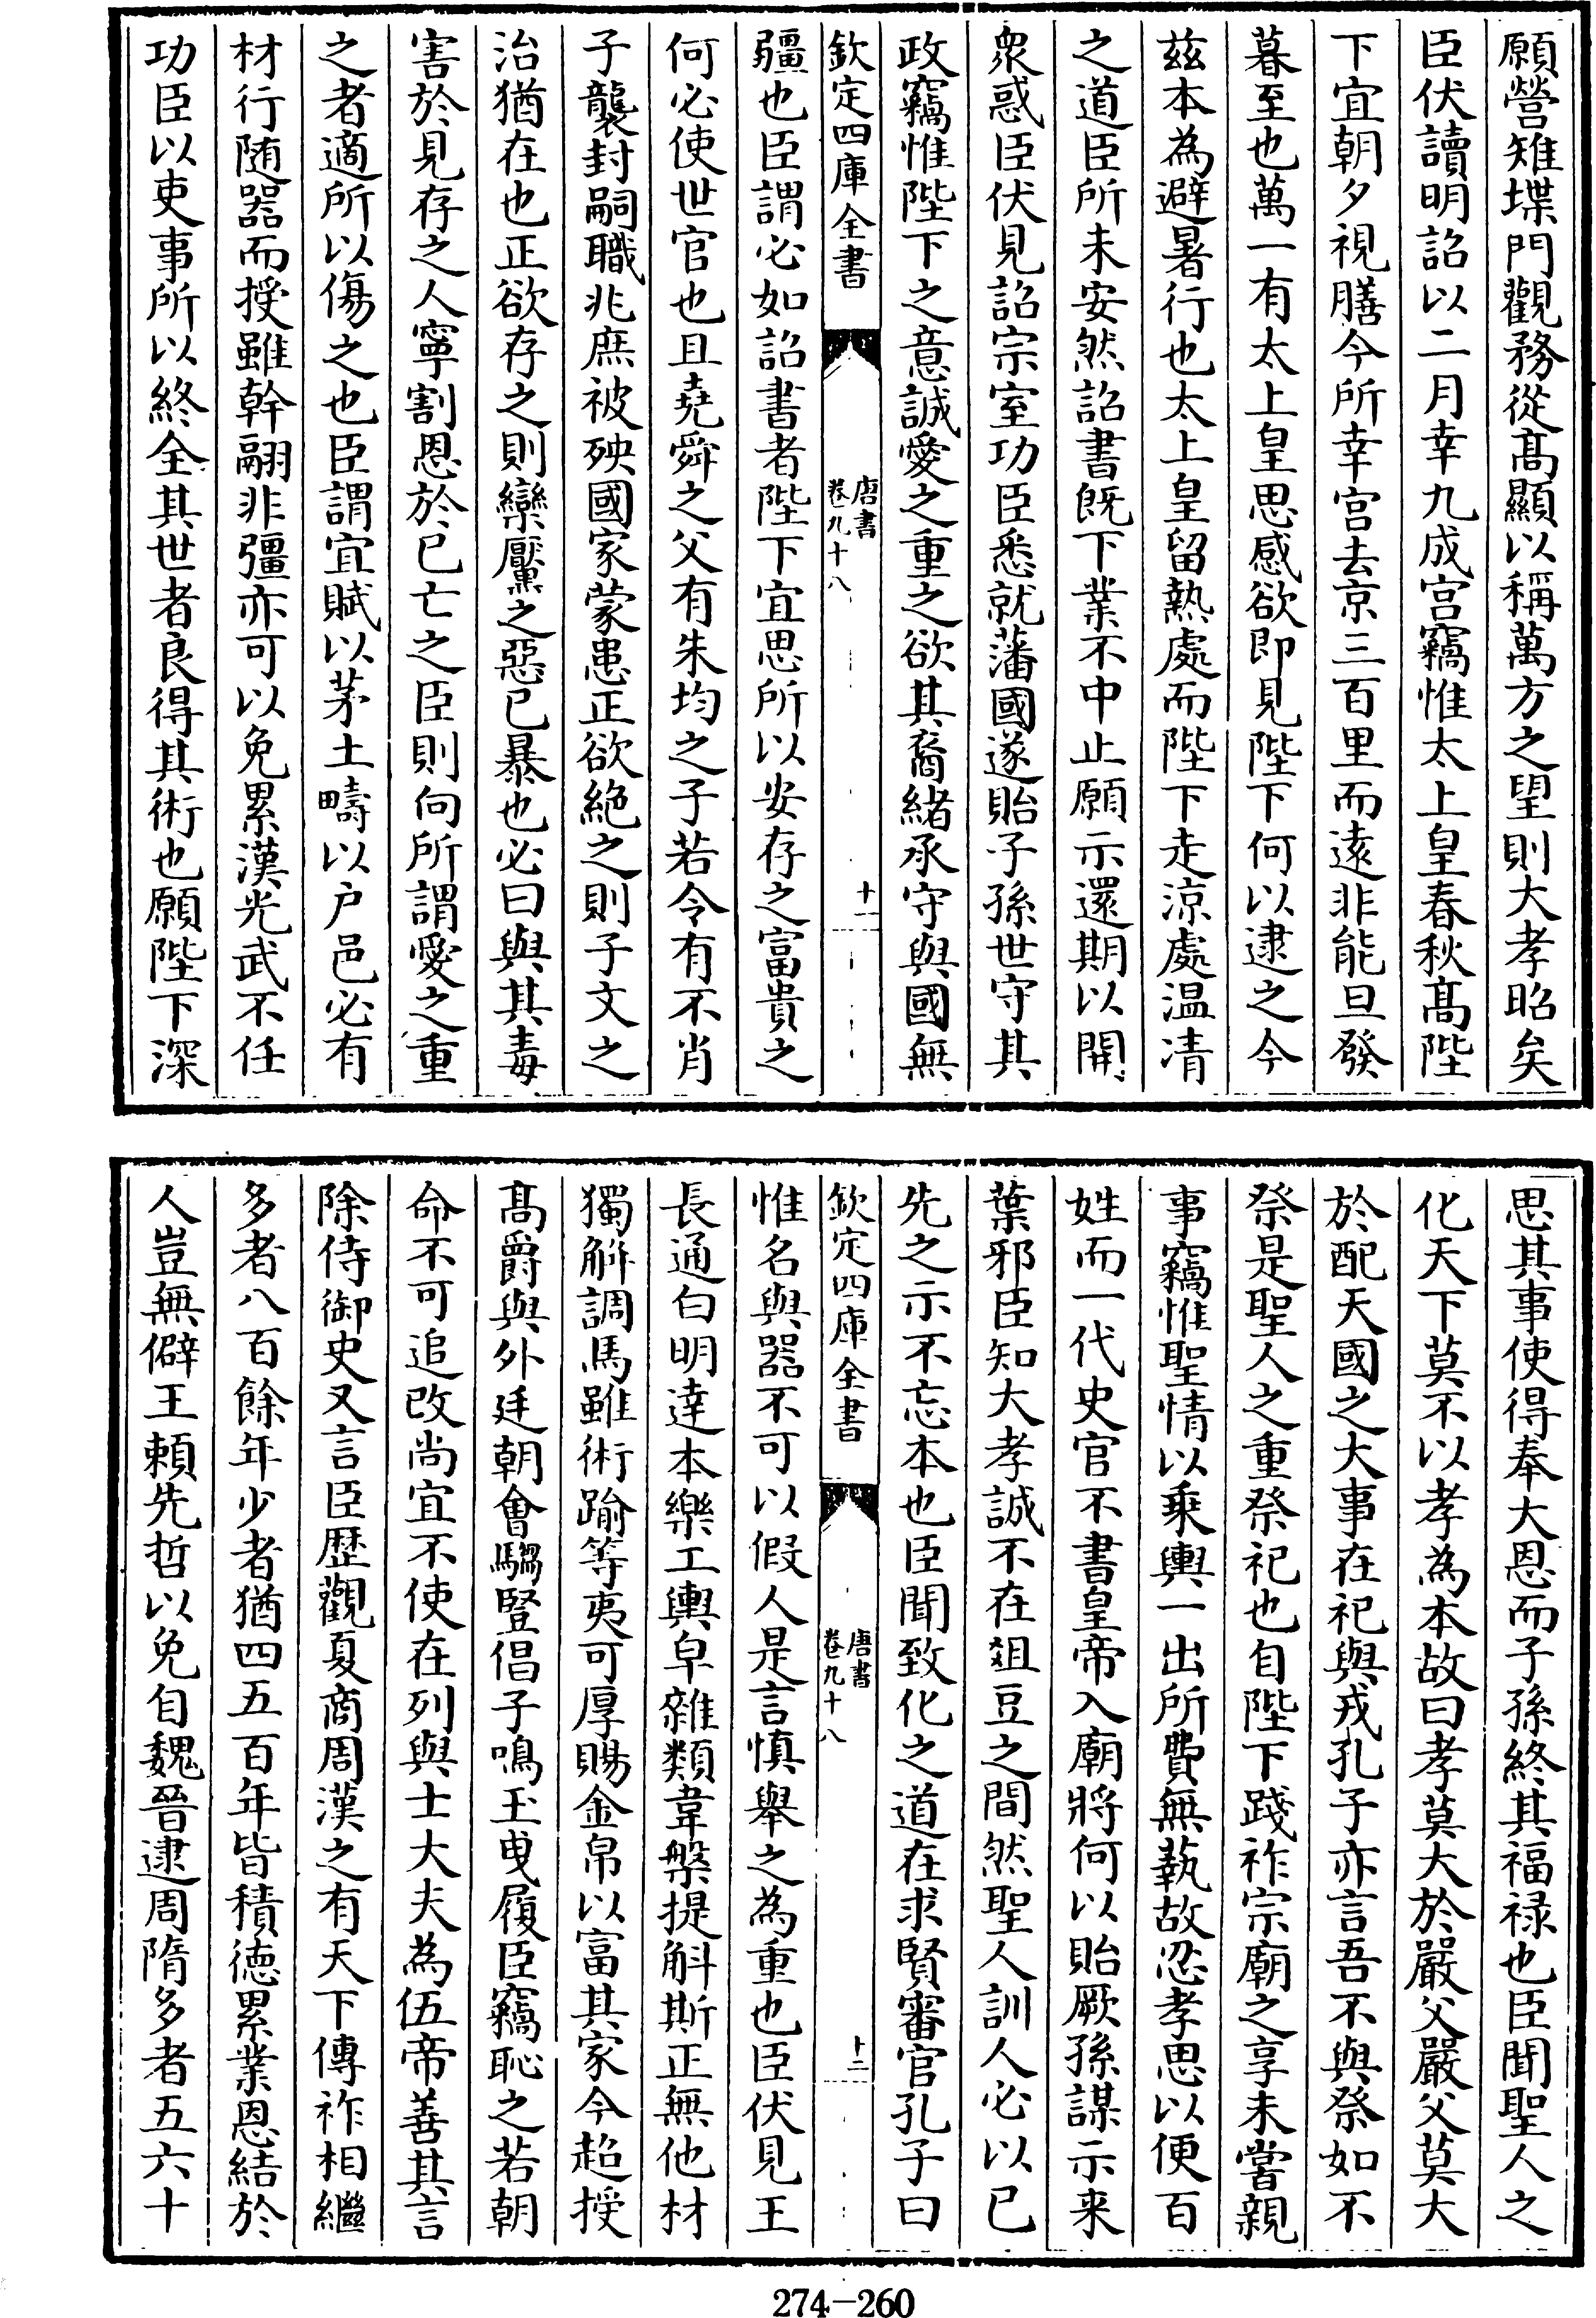 願營雉堞門觀務從髙顯以稱萬方之望則大孝昭矣
臣伏讀明詔以二月幸九成宫竊惟太上皇春秋髙陛
下宜朝夕視膳今所幸宫去京三百里而逺非能旦發
暮至也萬一有太上皇思感欲即見陛下何以逮之今
兹本為避暑行也太上皇留熱處而陛下走涼處温凊
之道臣所未安然詔書既下業不中止願示還期以開
衆惑臣伏見詔宗室功臣悉就藩國遂貽子孫世守其
政竊惟陛下之意誠愛之重之欲其裔緒承守與國無
欽定四庫全書
唐書
卷九十八
十一
疆也臣謂必如詔書者陛下宜思所以安存之富貴之
何必使世官也且堯舜之父有朱均之子若令有不肖
子襲封嗣職兆庶被殃國家蒙患正欲絶之則子文之
治猶在也正欲存之則欒黶之惡已暴也必曰與其毒
害於見存之人寧割恩於已亡之臣則向所謂愛之重
之者適所以傷之也臣謂宜賦以茅土疇以户邑必有
材行随器而授雖幹翮非彊亦可以免累漢光武不任
功臣以吏事所以終全其世者良得其術也願陛下深
思其事使得奉大恩而子孫終其福禄也臣聞聖人之
化天下莫不以孝為本故曰孝莫大於嚴父嚴父莫大
於配天國之大事在祀與戎孔子亦言吾不與祭如不
祭是聖人之重祭祀也自陛下踐祚宗廟之享未嘗親
事竊惟聖情以乗輿一出所費無蓺故忍孝思以便百
姓而一代史官不書皇帝入廟將何以貽厥孫謀示来
葉邪臣知大孝誠不在俎豆之間然聖人訓人必以已
先之示不忘本也臣聞致化之道在求賢審官孔子曰
欽定四庫全書
唐書
卷九十八
十二
惟名與器不可以假人是言慎舉之為重也臣伏見王
長通白明達本樂工輿皁雜類韋槃提斛斯正無他材
獨解調馬雖術踰等夷可厚賜金帛以富其家今超授
髙爵與外廷朝㑹騶豎倡子鳴玉曳履臣竊恥之若朝
命不可追改尚宜不使在列與士大夫為伍帝善其言
除侍御史又言臣歴觀夏商周漢之有天下傳祚相繼
多者八百餘年少者猶四五百年皆積徳累業恩結於
人豈無僻王頼先哲以免自魏晉逮周隋多者五六十
274-260